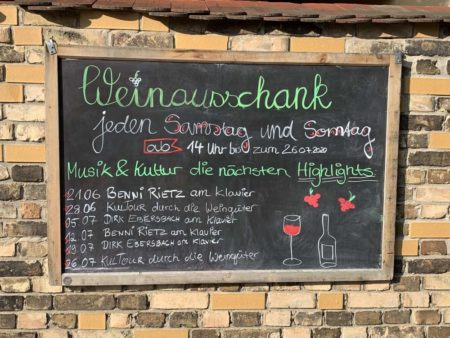 Weinausschank
jeden Samstag und Sonntag
ab 14 Uhr bis zum 26.07.2020
Musik & Kultur die nächsten Highlights
21.06 Benni Rietz am Klavier
28.06 KulTour durch die Weingüter
05.07 Dirk Ebersbach am Klavier
12.07 Benni Rietz am Klavier
19.07 Dirk Ebersbach am Klavier
26.07 KulTour durch die Weingüter